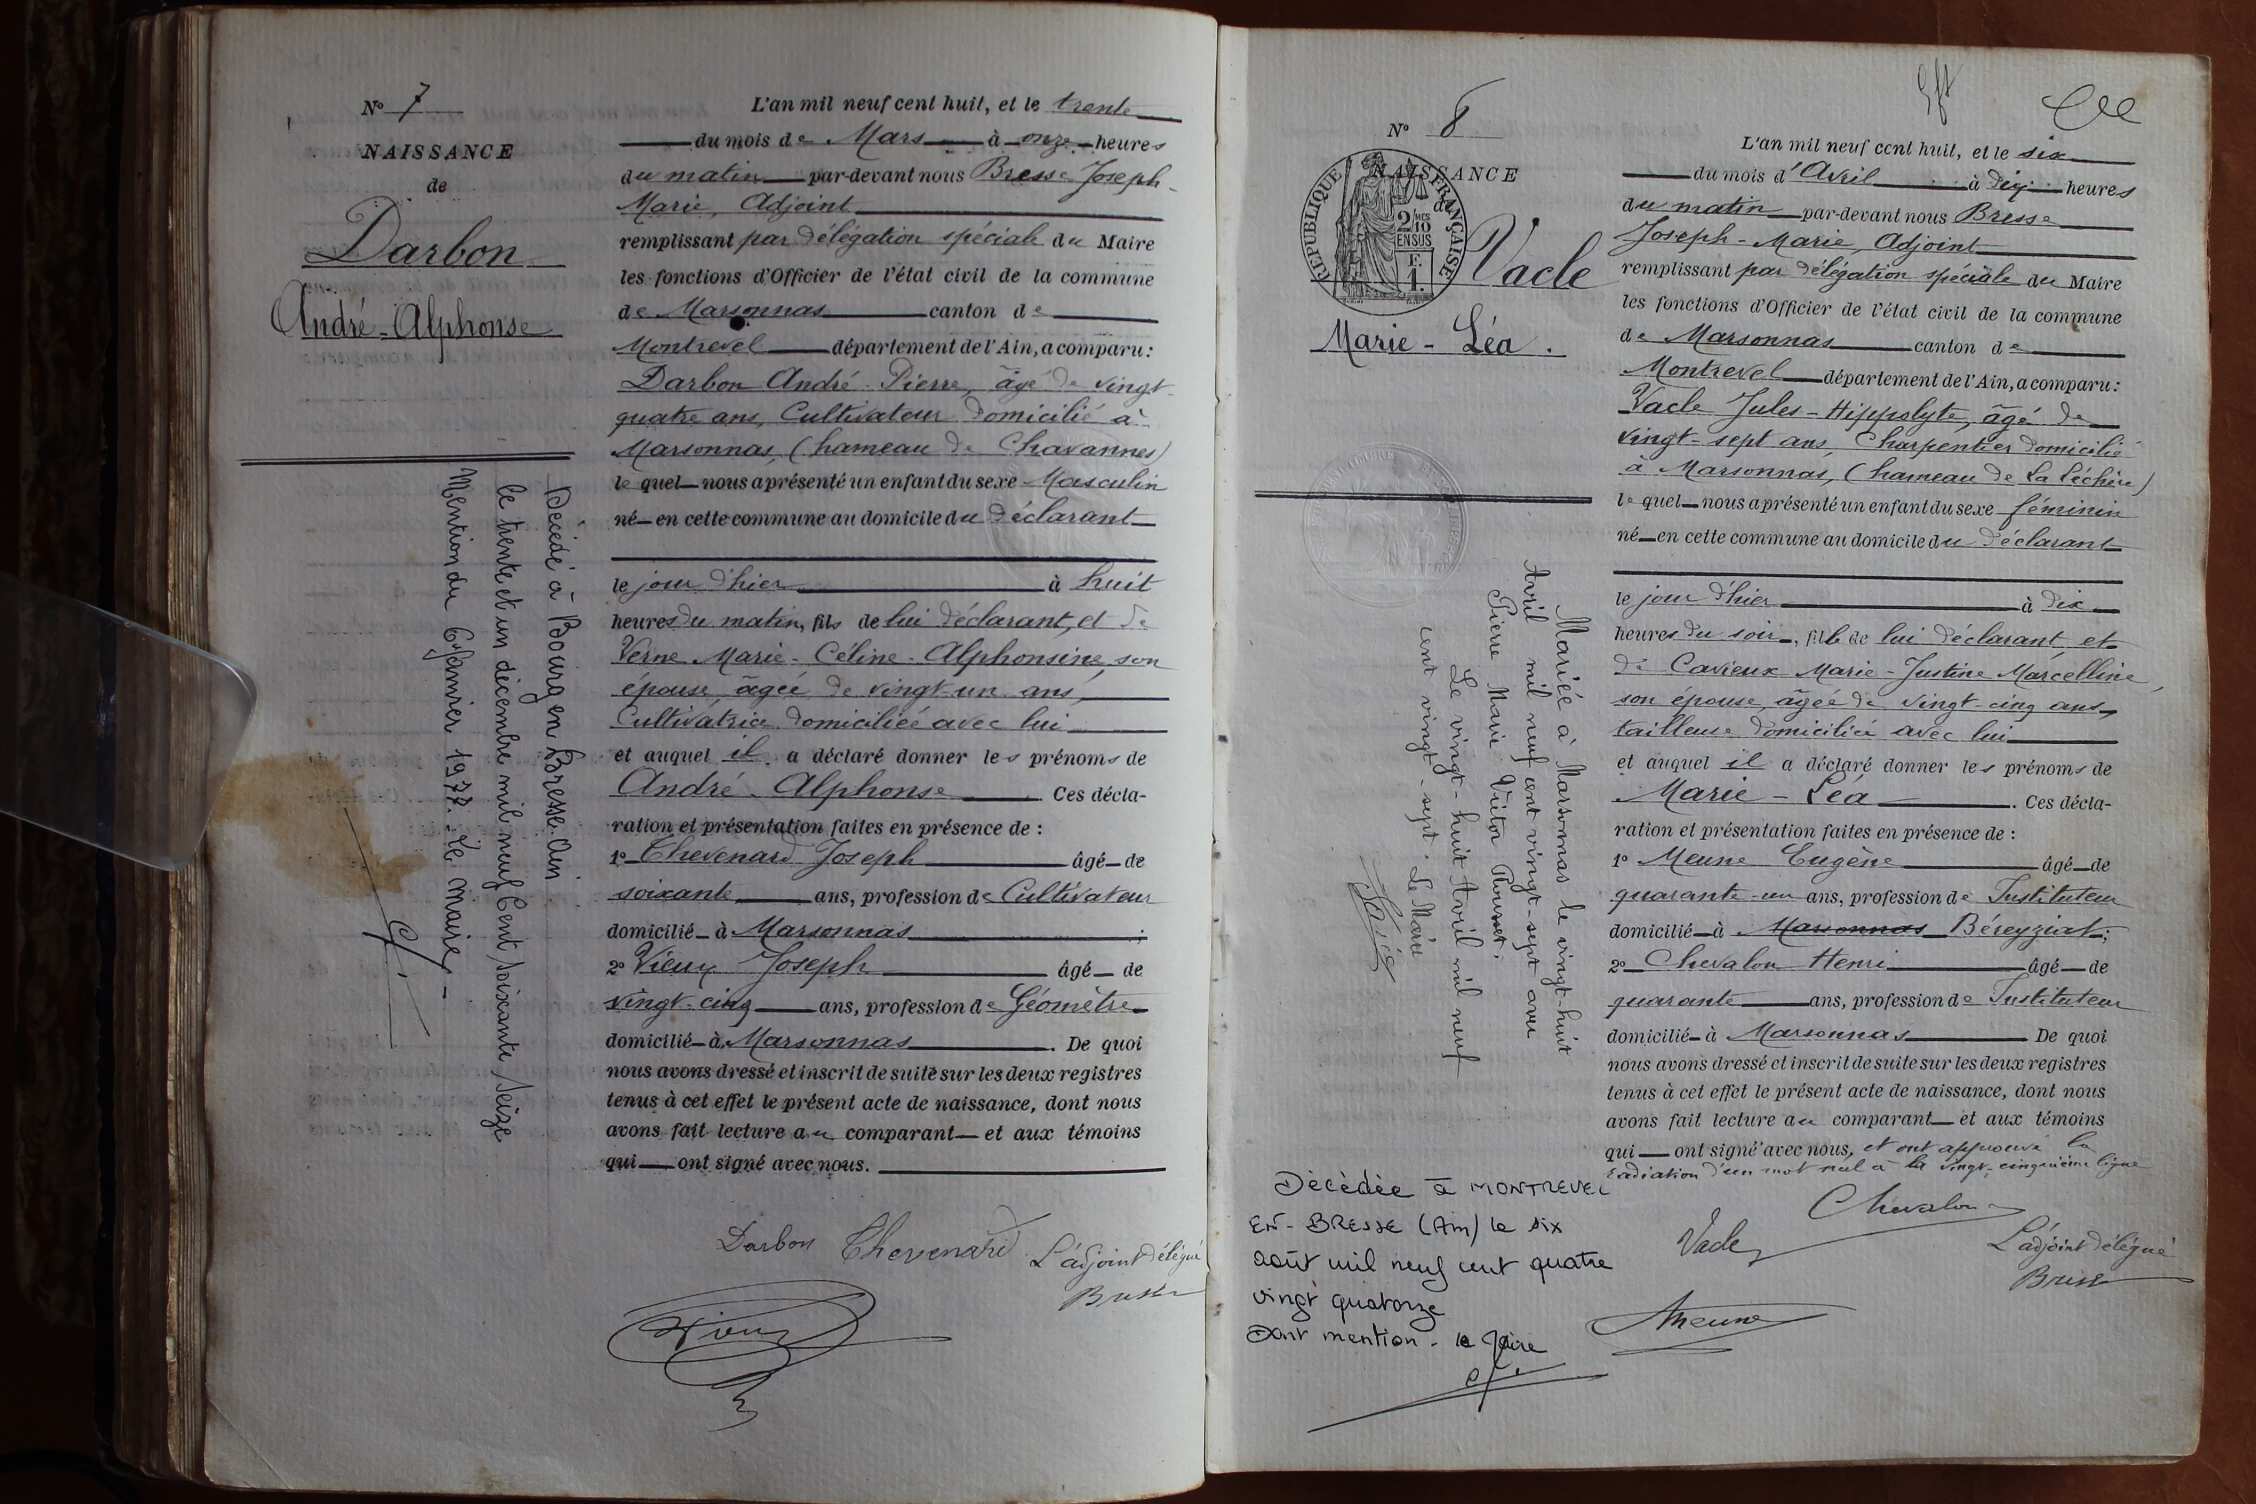 Nº 7
NAISSANCE
de
Darbon
André-Alphonse
Décédé à Bourg en Bresse. Ain
le trente et un décembre mil neuf Cent soixante seize
Mention du 6 Janvier 1977. Le Maire
L'an mil neuf cent huit, et le trente
du mois de Mars à onze heures
du matin par-devant nous Bresse Joseph-
Marie, Adjoint
remplissant par délégation spéciale du Maire
les fonctions d'Officier de l'état civil de la commune
de Marsonnas canton de
Montrevel département de l'Ain, a comparu:
Darbon André Pierre, âgé de vingt-
quatre ans, Cultivateur domicilié à
Marsonnas, (hameau de Chavannes)
le quel nous a présenté un enfant du sexe Masculin
né en cette commune au domicile du déclarant
le jour d'hier à huit
heures du matin, fils de lui déclarant, et de
Verne Marie-Céline-Alphonsine, son
épouse, âgée de vingt-un ans,
Cultivatrice domiciliée avec lui
et auquel il a déclaré donner les prénoms de
André-Alphonse. Ces décla-
ration et présentation faites en présence de :
1º Chevenard Joseph âgé de
soixante ans, profession de Cultivateur
domicilié à Marsonnas ;
2º Vieux Joseph âgé de
vingt-cinq ans, profession de Géomètre
domicilié à Marsonnas. De quoi
nous avons dressé et inscrit de suite sur les deux registres
tenus à cet effet le présent acte de naissance, dont nous
avons fait lecture au comparant et aux témoins
qui ont signé avec nous.
Darbon Chevenard L'adjoint délégué
Bresse
Vieux
Nº 8
NAISSANCE
de
RÉPUBLIQUE FRANÇAISE
2/10 EN SUS
F. 1.
Vacle
Marie-Léa.
Mariée à Marsonnas le vingt-huit
Avril mil neuf cent vingt-sept avec
Pierre Marie Victor Rousset.
Le vingt-huit Avril mil neuf
cent vingt-sept. Le Maire
Décédée à MONTREVEL
EN-BRESSE (Ain) le six
août mil neuf cent quatre
vingt quatorze
Dont mention. le Maire
L'an mil neuf cent huit, et le six
du mois d'Avril à dix heures
du matin par-devant nous Bresse
Joseph-Marie, Adjoint
remplissant par délégation spéciale du Maire
les fonctions d'Officier de l'état civil de la commune
de Marsonnas canton de
Montrevel département de l'Ain, a comparu:
Vacle Jules-Hippolyte, âgé de
vingt-sept ans, Charpentier domicilié
à Marsonnas, (hameau de La Léchère)
le quel nous a présenté un enfant du sexe féminin
né en cette commune au domicile du déclarant
le jour d'hier à dix
heures du soir, fille de lui déclarant et
de Cavieux Marie-Justine Marcelline,
son épouse, âgée de vingt-cinq ans,
tailleuse domiciliée avec lui
et auquel il a déclaré donner les prénoms de
Marie-Léa. Ces décla-
ration et présentation faites en présence de :
1º Meune Eugène âgé de
quarante-un ans, profession de Instituteur
domicilié à Marsonnas Béreyziat ;
2º Chevalon Henri âgé de
quarante ans, profession de Instituteur
domicilié à Marsonnas De quoi
nous avons dressé et inscrit de suite sur les deux registres
tenus à cet effet le présent acte de naissance, dont nous
avons fait lecture au comparant et aux témoins
qui ont signé avec nous, et ont approuvé la
radiation d'un mot nul à la vingt-cinquième ligne
Chevalon
Vacle L'adjoint délégué
Bresse
Meune